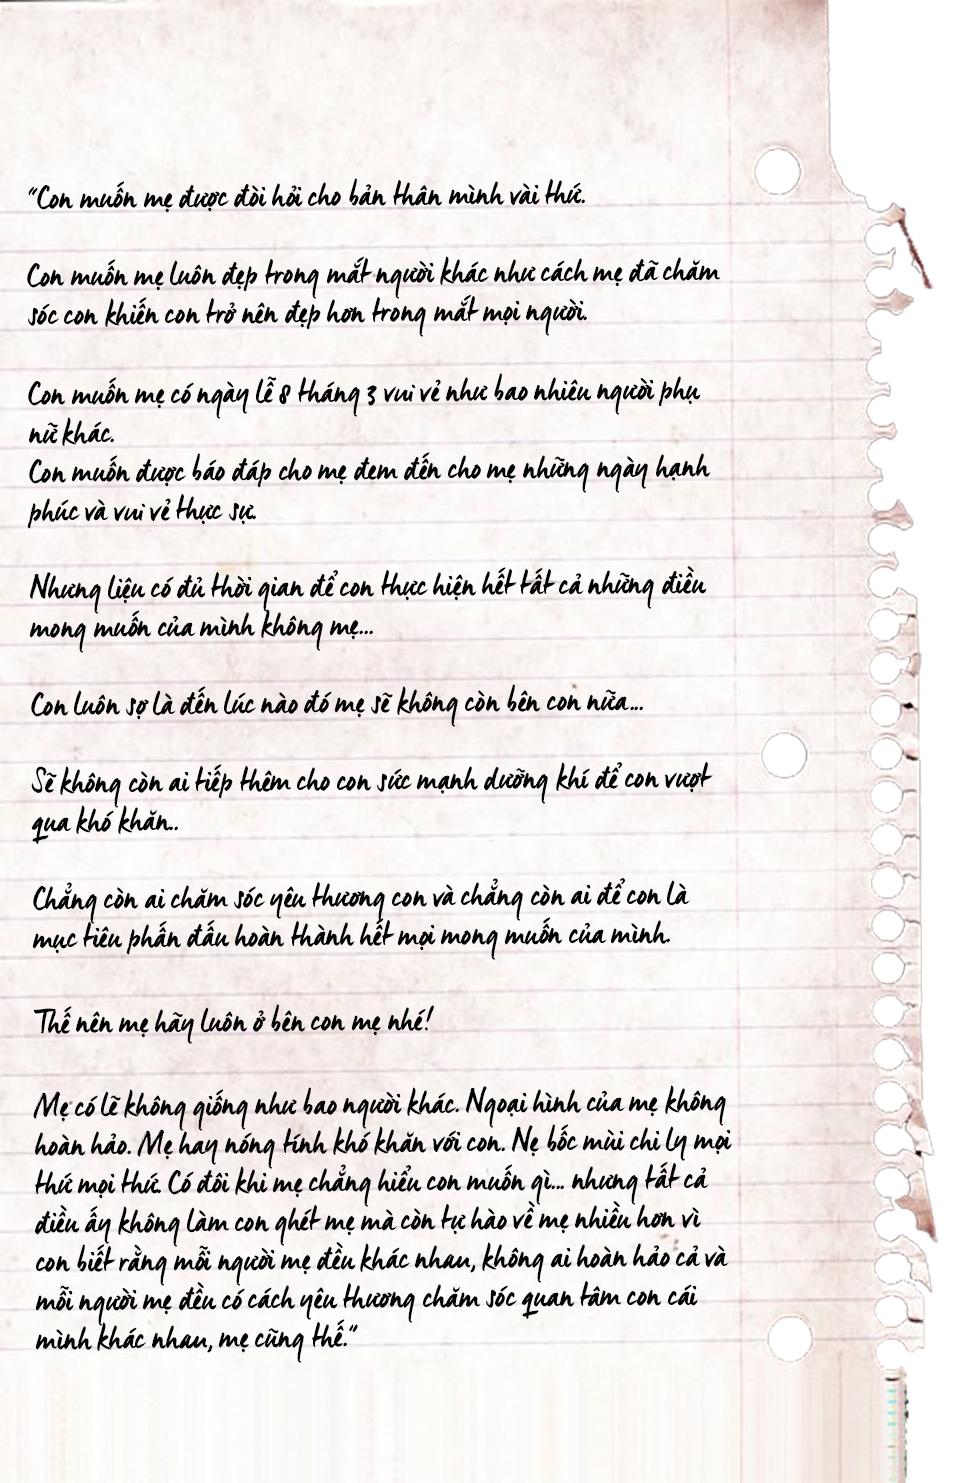 “Con muốn mẹ được đòi hỏi cho bản thân mình vài thứ.
Con muốn mẹ luôn đẹp trong mắt người khác như cách mẹ đã chăm
sóc con khiến con trở nên đẹp hơn trong mắt mọi người.
Con muốn mẹ có ngày lễ 8 tháng 3 vui vẻ như bao nhiêu người phụ
nữ khác.
Con muốn được báo đáp cho mẹ đem đến cho mẹ những ngày hạnh
phúc và vui vẻ thực sự.
Nhưng liệu có đủ thời gian để con thực hiện hết tất cả những điều
mong muốn của mình không mẹ...
Con luôn sợ là đến lúc nào đó mẹ sẽ không còn bên con nữa...
Sẽ không còn ai tiếp thêm cho con sức mạnh dưỡng khí để con vượt
qua khó khăn..
Chẳng còn ai chăm sóc yêu thương con và chẳng còn ai để con là
mục tiêu phấn đấu hoàn thành hết mọi mong muốn của mình.
Thế nên mẹ hãy luôn ở bên con mẹ nhé!
Mẹ có lẽ không giống như bao người khác. Ngoại hình của mẹ không
hoàn hảo. Mẹ hay nóng tính khó khăn với con. Nẹ bốc mùi chi ly mọi
thứ mọi thứ. Có đôi khi mẹ chẳng hiểu con muốn gì... nhưng tất cả
điều ấy không làm con ghét mẹ mà còn tự hào về mẹ nhiều hơn vì
con biết rằng mỗi người mẹ đều khác nhau, không ai hoàn hảo cả và
mỗi người mẹ đều có cách yêu thương chăm sóc quan tâm con cái
mình khác nhau, mẹ cũng thế.”